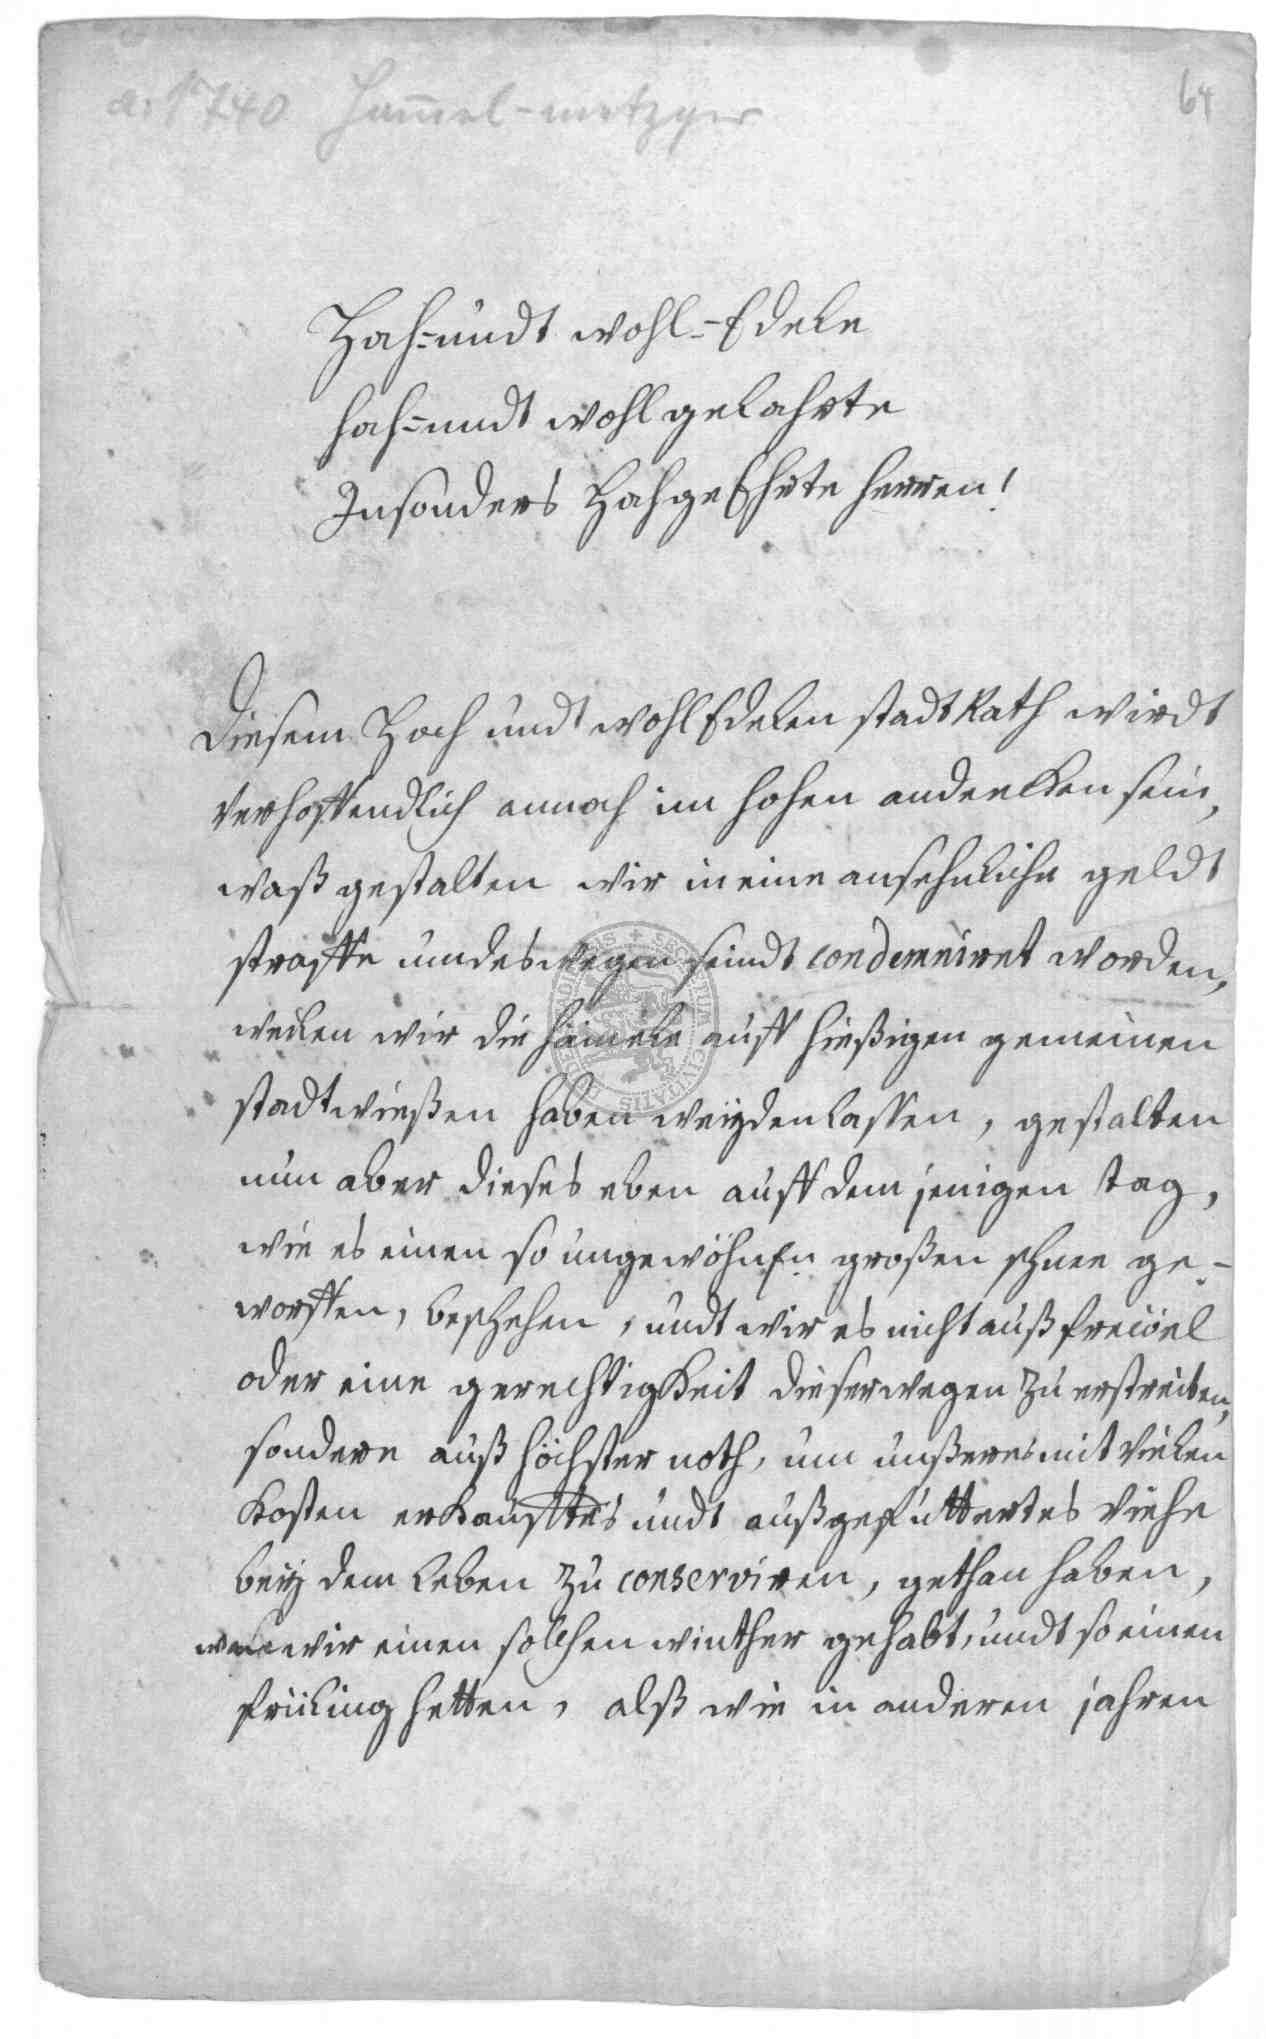 a: 1740 Ham̄el-metzger
64
Hoch=undt wohl-Edele
hoch=undt wohlgelahrte
Insonders HochgeEhrte herren!
Diesem Hoch undt wohlEdelen stadtRath wirdt
Verhoffendlich annoch im hohen andencken sein,
waß gestalten wir in eine ansehnliche geldt
straffe umdeswegen seindt condemniret worden,
weilen wir die hämele auff hießigen gemeinen
stadtwießen haben weyden lassen, gestalten
nun aber dieses eben auff dem jenigen tag,
wie es einen so ungewöhnl. großen schnee ge-
worffen, beschehen, undt wir es nicht auß freiöel
oder eine gerechtigkeit dieserwegen zu erstreiten,
sondern auß höchster noth, um unßeres mit vielen
Kosten erkaufftes undt außgefuttertes Viehe
bey dem leben zu conserviren, gethan haben,
wir einen solchen winther gehabt, undt so einen
früling hetten, alß wie in anderen jahren